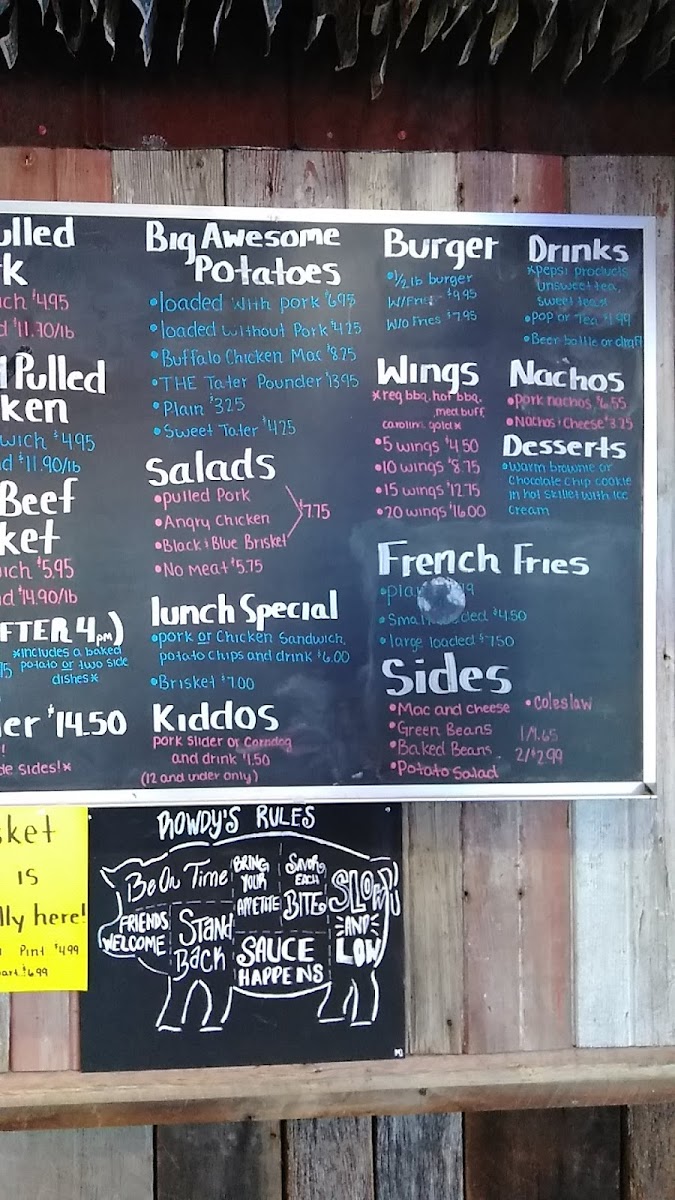 ulled
k
ich $4.95
d $11.90/lb
Pulled
ken
wich $4.95
d $11.90/lb
Beef
ket
ich $5.95
d $14.90/lb
FTER 4pm)
*includes a baked
potato or two side
dishes*
er $14.50
de sides!*
Big Awesome
Potatoes
•loaded with pork $6.95
•loaded without Pork $4.25
•Buffalo Chicken Mac $8.25
•THE Tater Pounder $13.95
•Plain $3.25
•Sweet Tater $4.25
Salads
•pulled Pork
•Angry Chicken
•Black & Blue Brisket
$7.75
•No meat $5.75
lunch Special
•pork or Chicken Sandwich,
potato chips and drink $6.00
•Brisket $7.00
Kiddos
pork slider or Corndog
and drink $1.50
(12 and under only)
Burger
•1/2 lb burger
W/Fries $9.95
W/O Fries $7.95
Wings
*reg bbq, hot bbq,
med buff,
carolina gold*
•5 wings $4.50
•10 wings $8.75
•15 wings $12.75
•20 wings $16.00
Drinks
*pepsi products
unsweet tea,
sweet tea*
•Pop or Tea $1.99
•Beer bottle or draft
Nachos
•pork nachos $6.55
•Nachos & Cheese $3.25
Desserts
•warm brownie or
Chocolate Chip cookie
in hot skillet with Ice
Cream
French Fries
•Small $4.50
•large loaded $7.50
Sides
•Mac and cheese •Coleslaw
•Green Beans 1/1.65
•Baked Beans 2/$2.99
•Potato Salad
sket
is
lly here!
Pint $4.99
art $6.99
ROWDY'S RULES
Be On Time
BRING
YOUR
APPETITE
SAVOR
EACH
BITE
SLOW
AND
LOW
FRIENDS
WELCOME
STAND
BACK
SAUCE
HAPPENS